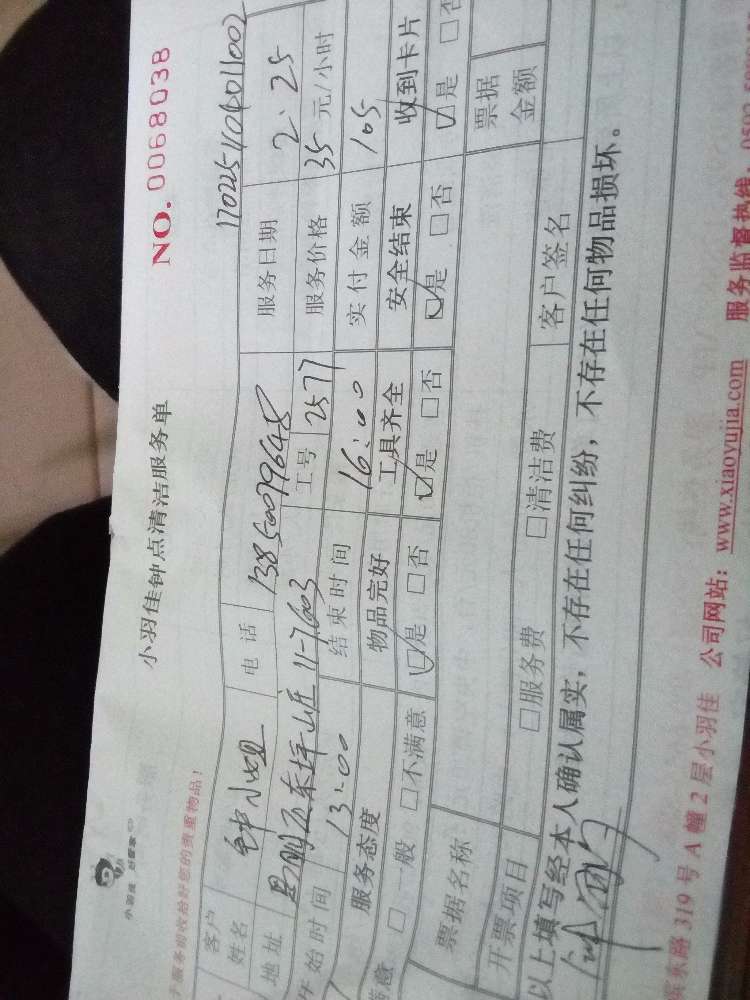 小羽佳钟点清洁服务单
NO. 0068038
小羽佳 好管家
务前收拾好您的贵重物品！
170225110401011002
客户姓名 钟小姐 电话 13850079648 服务日期 2.25
地址 东坪山庄 11-7603 工号 2577 服务价格 35 元/小时
始时间 13:00 结束时间 16:00 实付金额 105
服务态度 物品完好 工具齐全 安全结束 收到卡片
满意 □一般 □不满意 ☑是 □否 ☑是 □否 ☑是 □否 ☑是 □否
票据名称 票据金额
开票项目 □服务费 □清洁费 客户签名
以上填写经本人确认属实，不存在任何纠纷，不存在任何物品损坏。
滨东路 319 号 A 幢 2 层小羽佳 公司网站：www.xiaoyujia.com 服务监督热线：